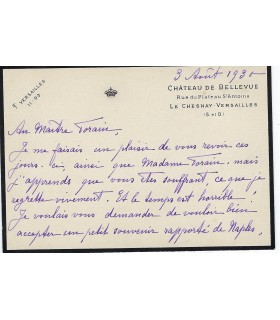 3 Août 1931
T. VERSAILLES
11-93
CHÂTEAU DE BELLEVUE
Rue du Plateau St Antoine
LE CHESNAY-VERSAILLES
(S & O)
Au Maître Forain,
Je me faisais un plaisir de vous revoir ces
jours-ci, ainsi que Madame Forain, mais
j'apprends que vous êtes souffrant ce que je
regrette vivement. Et le temps est horrible!
Je voulais vous demander de vouloir bien
accepter un petit souvenir rapporté de Naples,